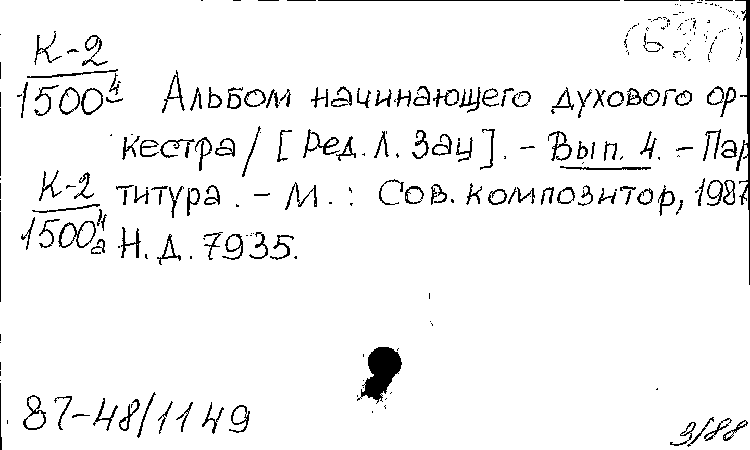 К-2
1500⁴ Альбом начинающего духового ор-
кестра / [Ред. Л. Зац]. - Вып. 4. - Пар
К-2 титура. - М. : Сов. композитор, 1987
1500⁴а Н.Д. 7935.
87-48/1149
3/88